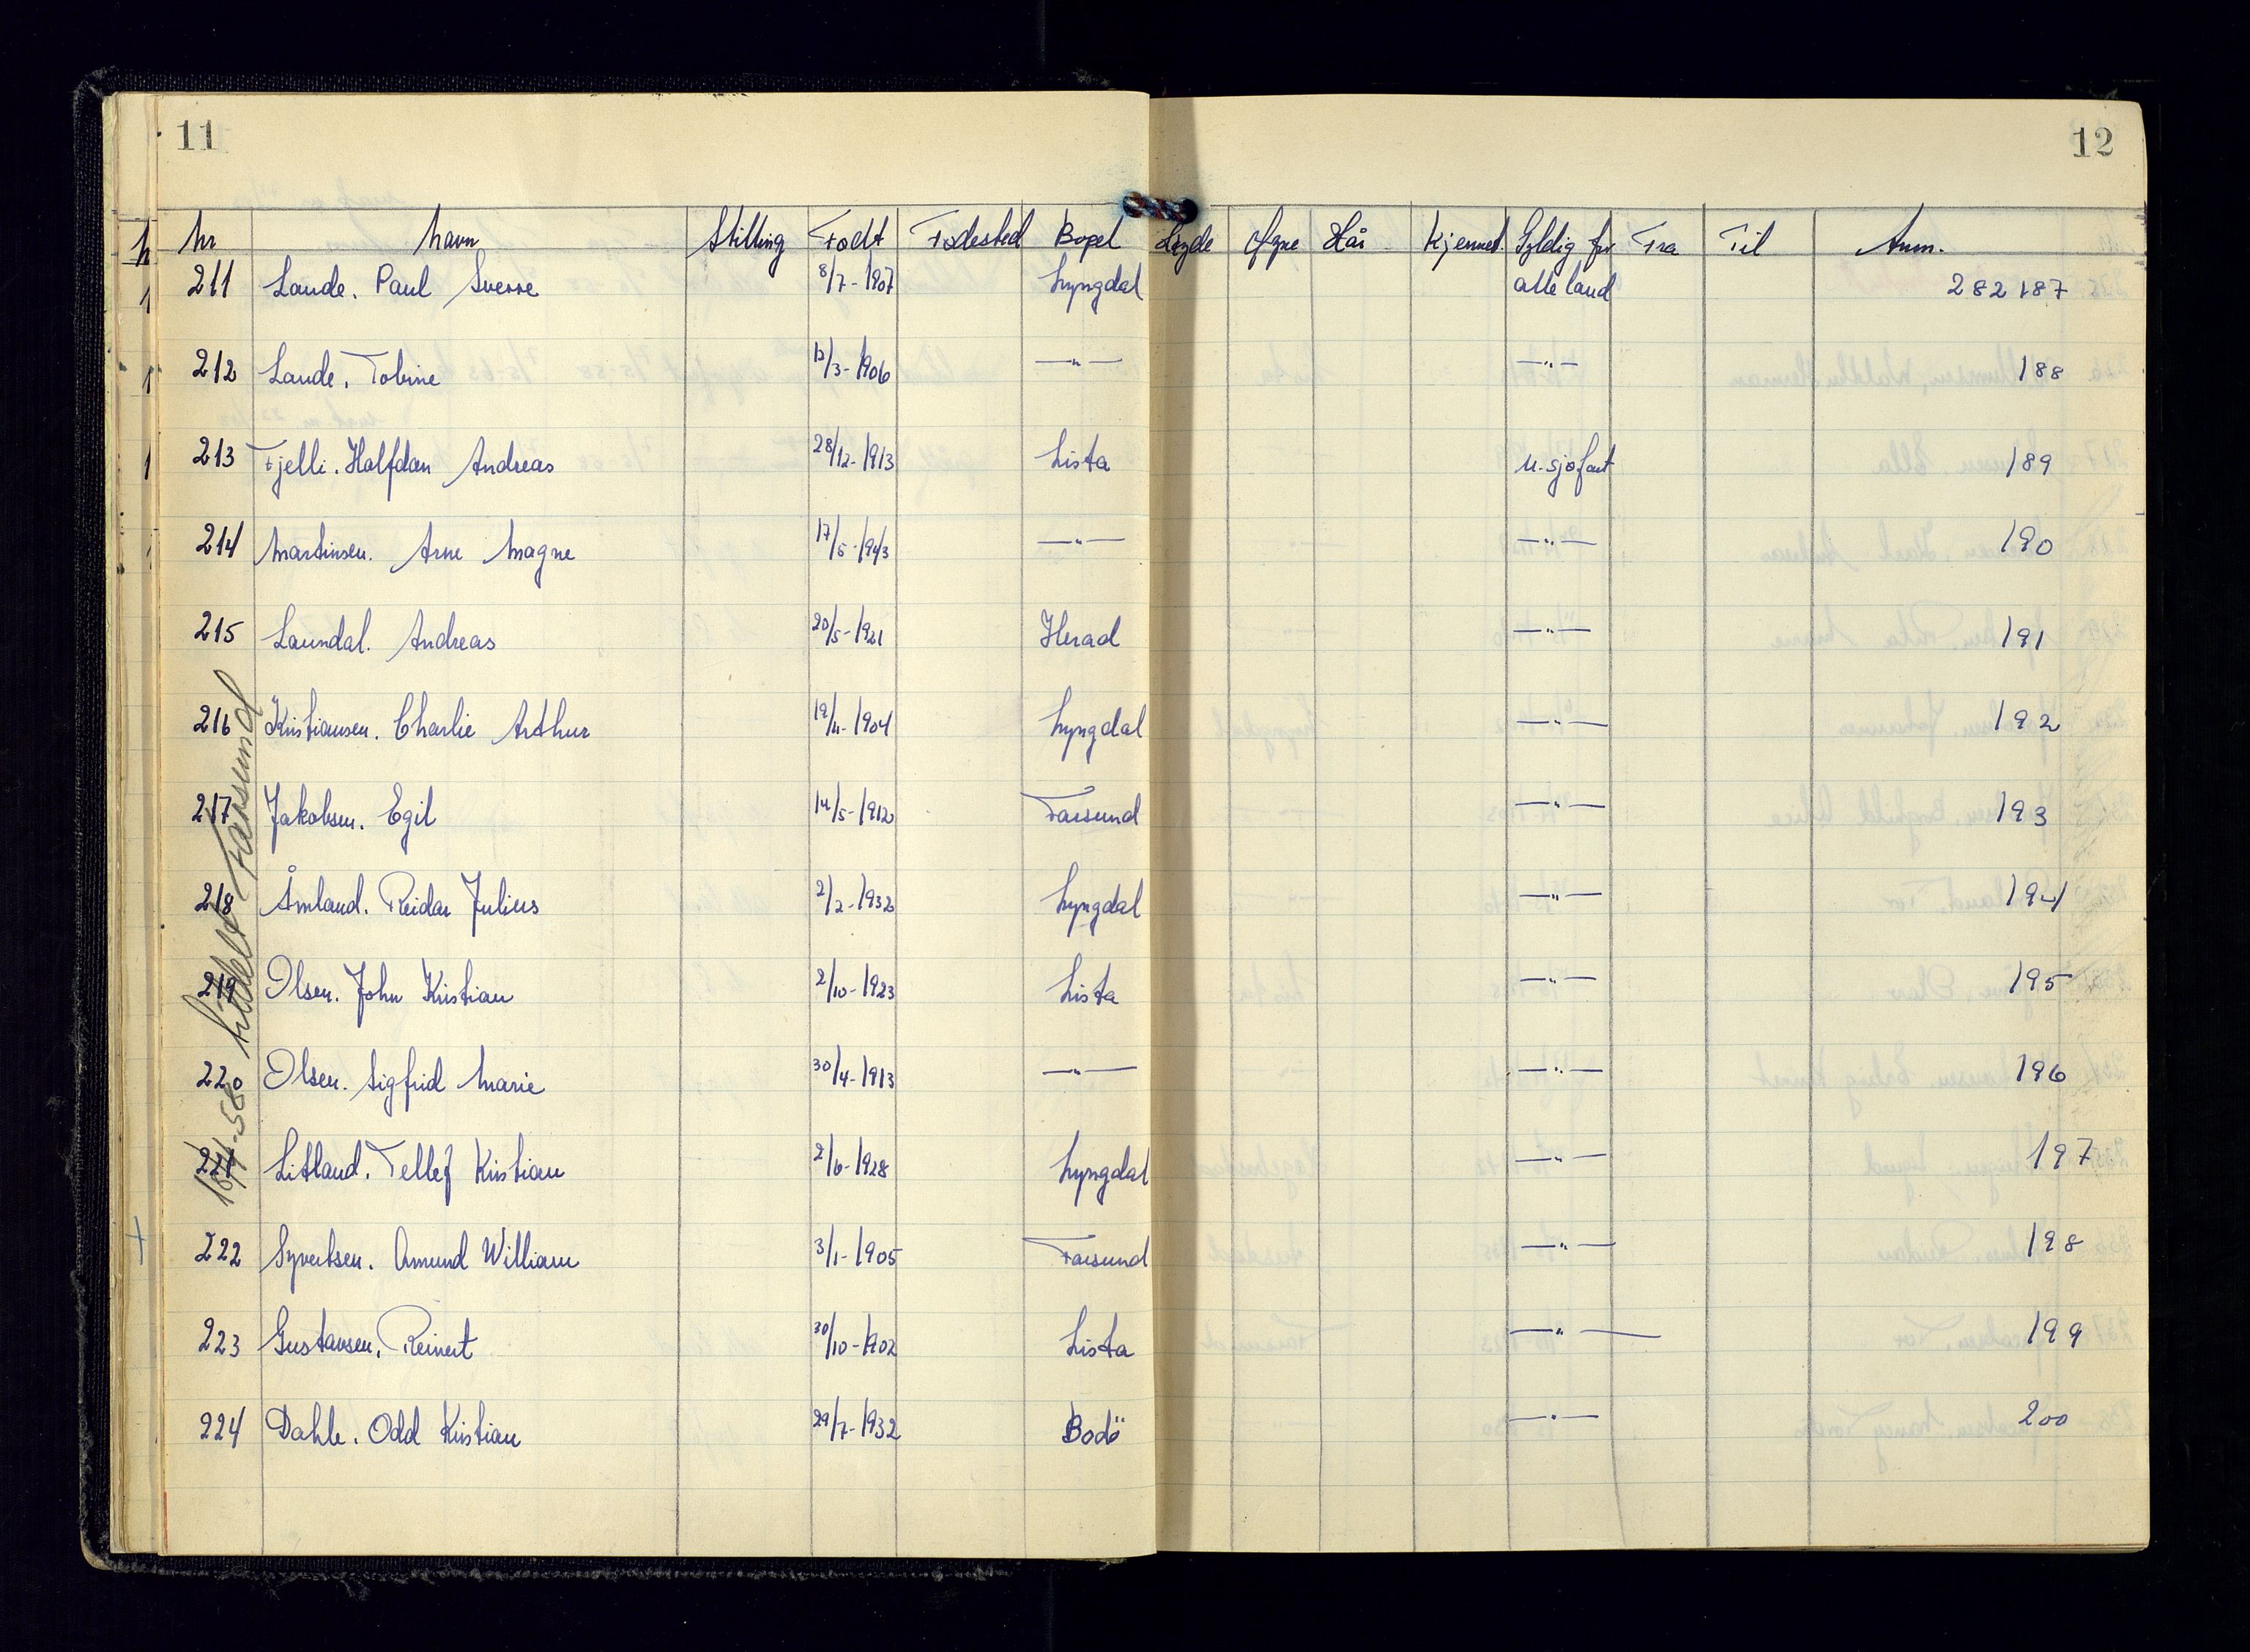 11
12
Nr Navn Stilling Født Fødested Bopel Høyde Øyne Hår Kjennet. Gyldig for Fra Til Anm.
211 Lande. Paul Sverre 8/7-1907 Lyngdal alle land 282187
212 Lande. Tobine 12/3-1906 —"— —"— 188
213 Fjelli. Halfdan Andreas 28/12-1913 Lista u-sjøfart 189
214 Martinsen. Arne Magne 17/5-1943 —"— —"— 190
215 Laundal. Andreas 20/5-1921 Herad —"— 191
216 Kristiansen. Charlie Arthur 19/11-1904 Lyngdal —"— 192
217 Jakobsen. Egil 14/5-1912 Farsund —"— 193
218 Åmland. Reidar Julius 2/2-1932 Lyngdal —"— 194
219 Olsen. John Kristian 2/10-1923 Lista —"— 195
220 Olsen. Sigfrid Marie 30/4-1913 —"— —"— 196
221 Litland. Tellef Kristian 2/6-1928 Lyngdal —"— 197
222 Syvertsen. Amund William 3/1-1905 Farsund —"— 198
223 Gustavsen. Reinert 30/10-1902 Lista —"— 199
224 Dahle. Odd Kristian 29/7-1932 Bodö —"— 200
Farsund